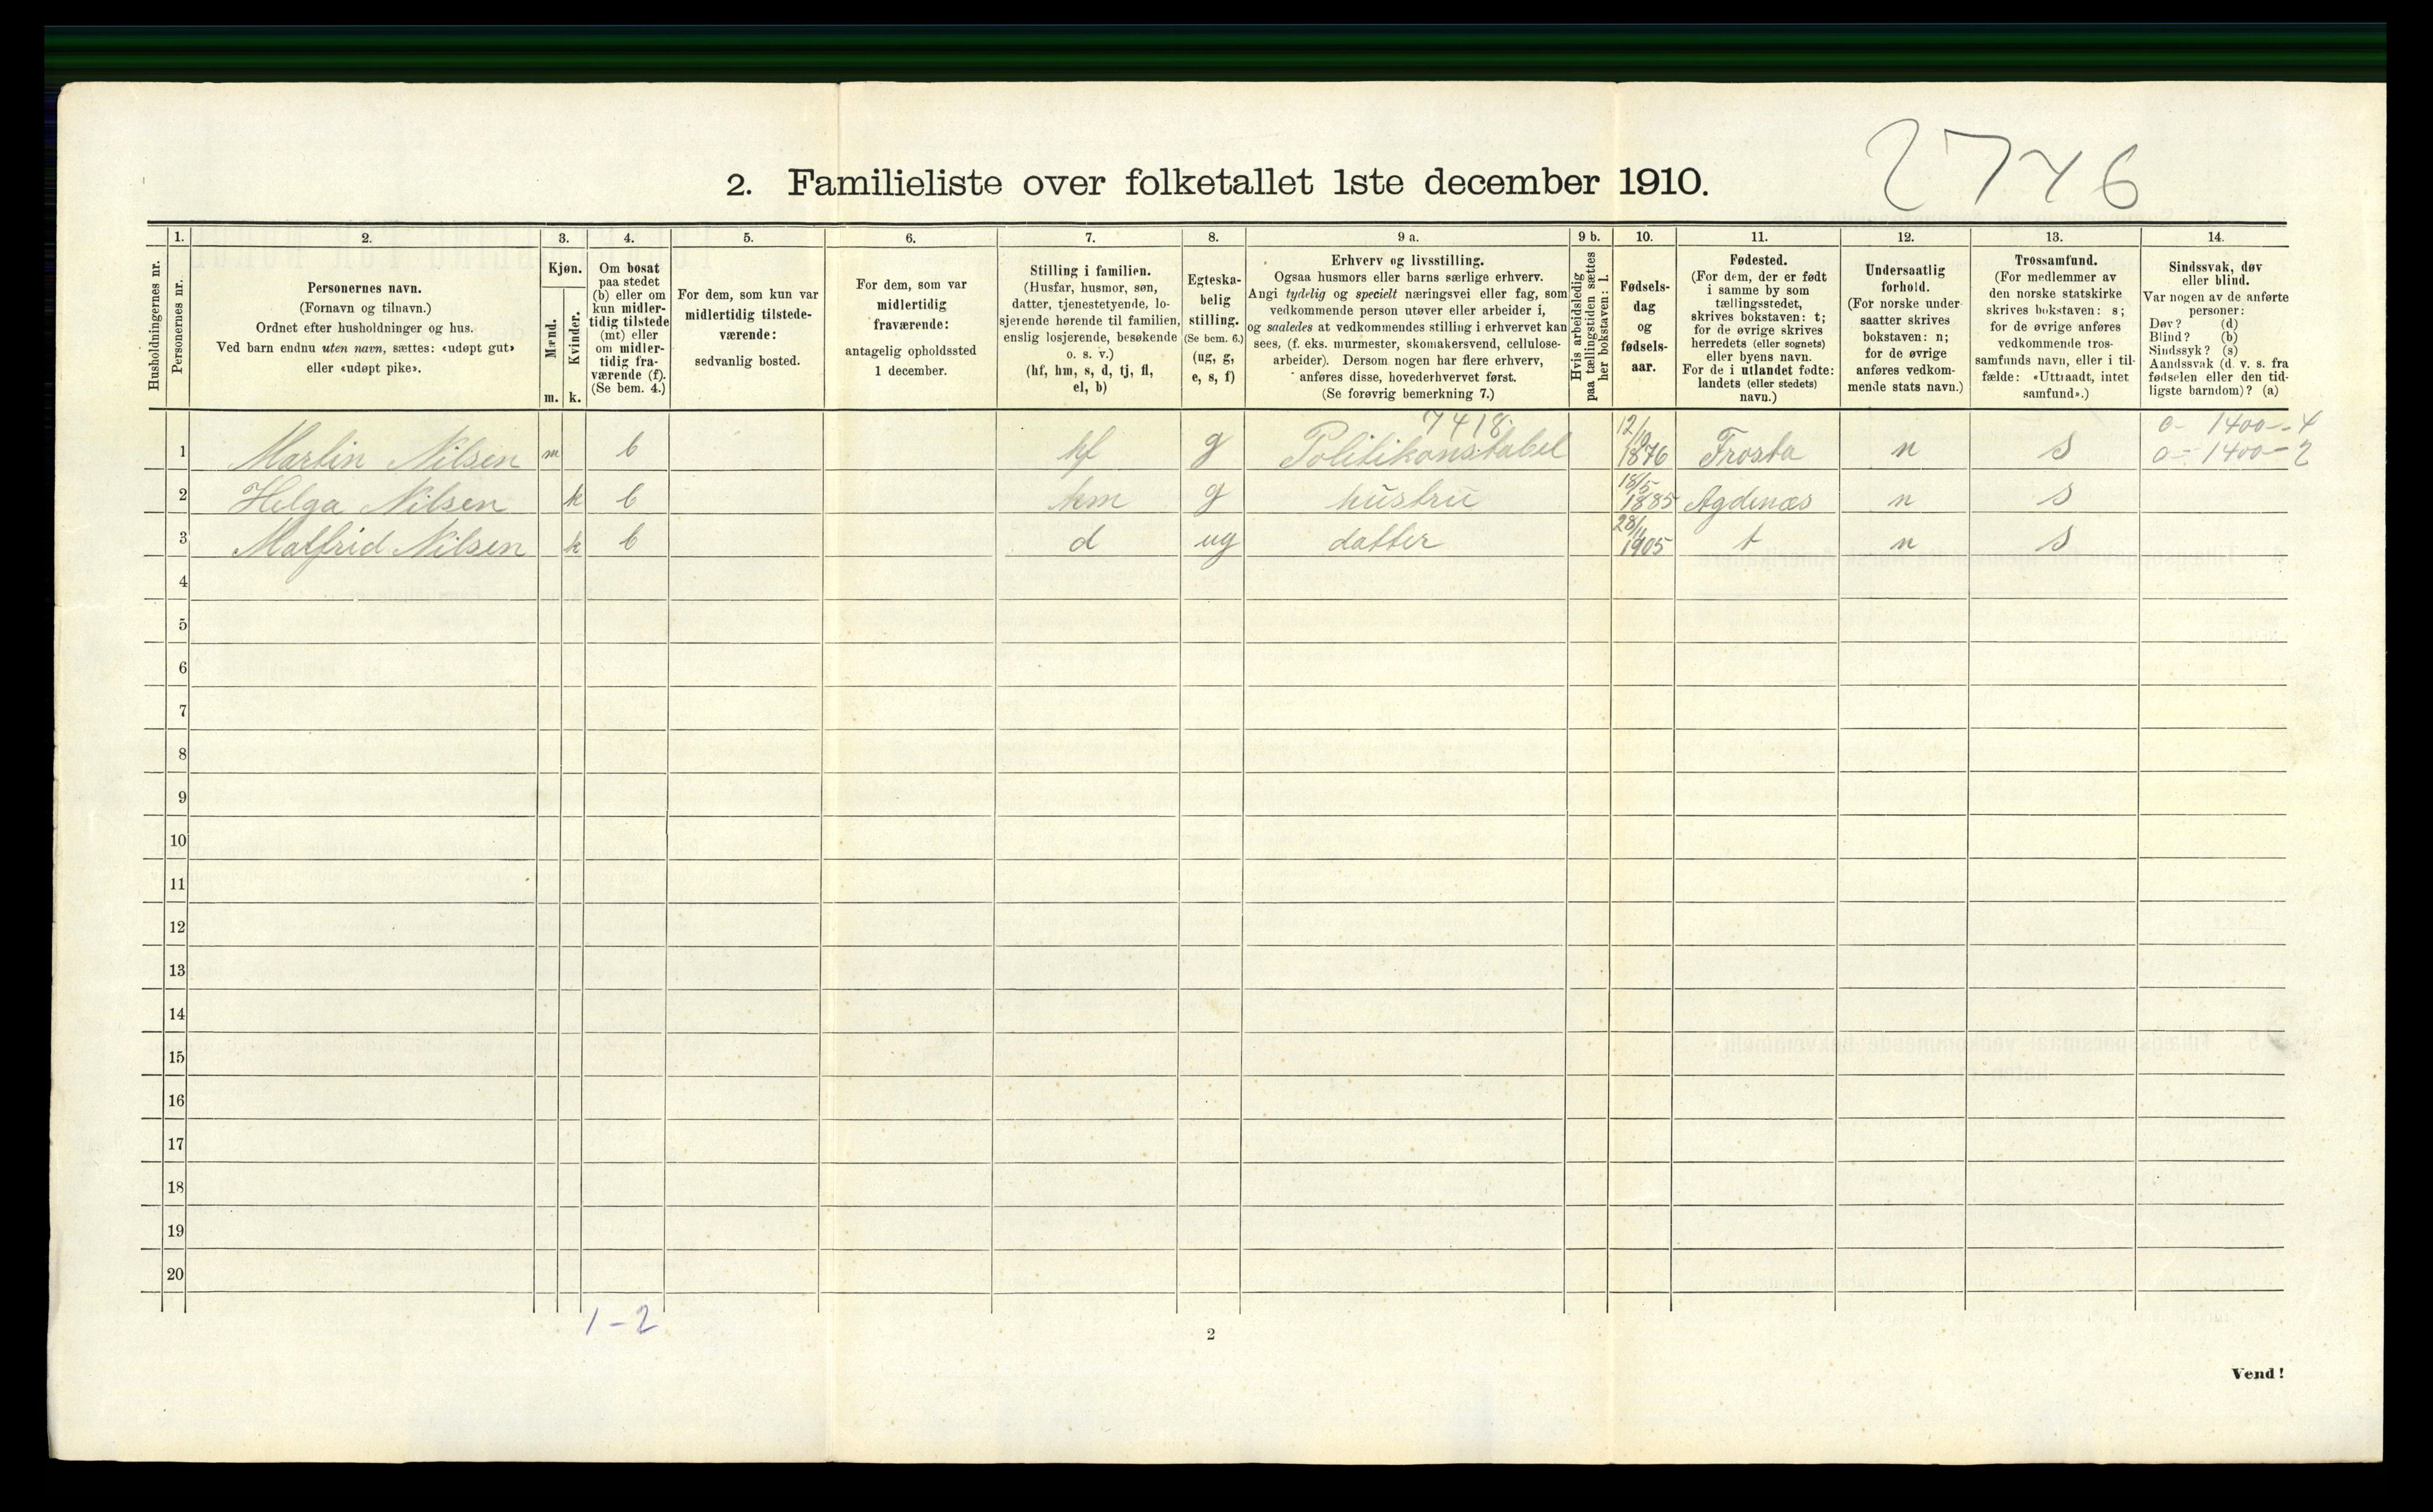 2746
2. Familieliste over folketallet 1ste december 1910.
Husholdningernes nr.
1. Personernes nr.
2. Personernes navn.
(Fornavn og tilnavn.)
Ordnet efter husholdninger og hus.
Ved barn endnu uten navn, sættes: «udøpt gut»
eller «udøpt pike».
3. Kjøn.
Mænd. m.
Kvinder. k.
4. Om bosat
paa stedet
(b) eller om
kun midler-
tidig tilstede
(mt) eller
om midler-
tidig fra-
værende (f).
(Se bem. 4.)
5. For dem, som kun var
midlertidig tilstede-
værende:
sedvanlig bosted.
6. For dem, som var
midlertidig
fraværende:
antagelig opholdssted
1 december.
7. Stilling i familien.
(Husfar, husmor, søn,
datter, tjenestetyende, lo-
sjerende hørende til familien,
enslig losjerende, besøkende
o. s. v.)
(hf, hm, s, d, tj, fl,
el, b)
8. Egteska-
belig
stilling.
(Se bem. 6.)
(ug, g,
e, s, f)
9 a. Erhverv og livsstilling.
Ogsaa husmors eller barns særlige erhverv.
Angi tydelig og specielt næringsvei eller fag, som
vedkommende person utøver eller arbeider i,
og saaledes at vedkommendes stilling i erhvervet kan
sees, (f. eks. murmester, skomakersvend, cellulose-
arbeider). Dersom nogen har flere erhverv,
anføres disse, hovederhvervet først.
(Se forøvrig bemerkning 7.)
9 b. Hvis arbeidsledig
paa tællingstiden sættes
her bokstaven: l.
10. Fødsels-
dag
og
fødsels-
aar.
11. Fødested.
(For dem, der er født
i samme by som
tællingsstedet,
skrives bokstaven: t;
for de øvrige skrives
herredets (eller sognets)
eller byens navn.
For de i utlandet fødte:
landets (eller stedets)
navn.)
12. Undersaatlig
forhold.
(For norske under-
saatter skrives
bokstaven: n;
for de øvrige
anføres vedkom-
mende stats navn.)
13. Trossamfund.
(For medlemmer av
den norske statskirke
skrives bokstaven: s;
for de øvrige anføres
vedkommende tros-
samfunds navn, eller i til-
fælde: «Uttraadt, intet
samfund».)
14. Sindssvak, døv
eller blind.
Var nogen av de anførte
personer:
Døv? (d)
Blind? (b)
Sindssyk? (s)
Aandssvak (d. v. s. fra
fødselen eller den tid-
ligste barndom)? (a)
7418. 0- 1400--4
1 Martin Nilsen m b hf g Politikonstabel 12/10 1876 Frosta n s 0- 1400-2
2 Helga Nilsen k b hm g hustru 18/5 1885 Agdenæs n s
3 Malfrid Nilsen k b d ug datter 28/11 1905 t n s
4
5
6
7
8
9
10
11
12
13
14
15
16
17
18
19
20
1-2
2
Vend!